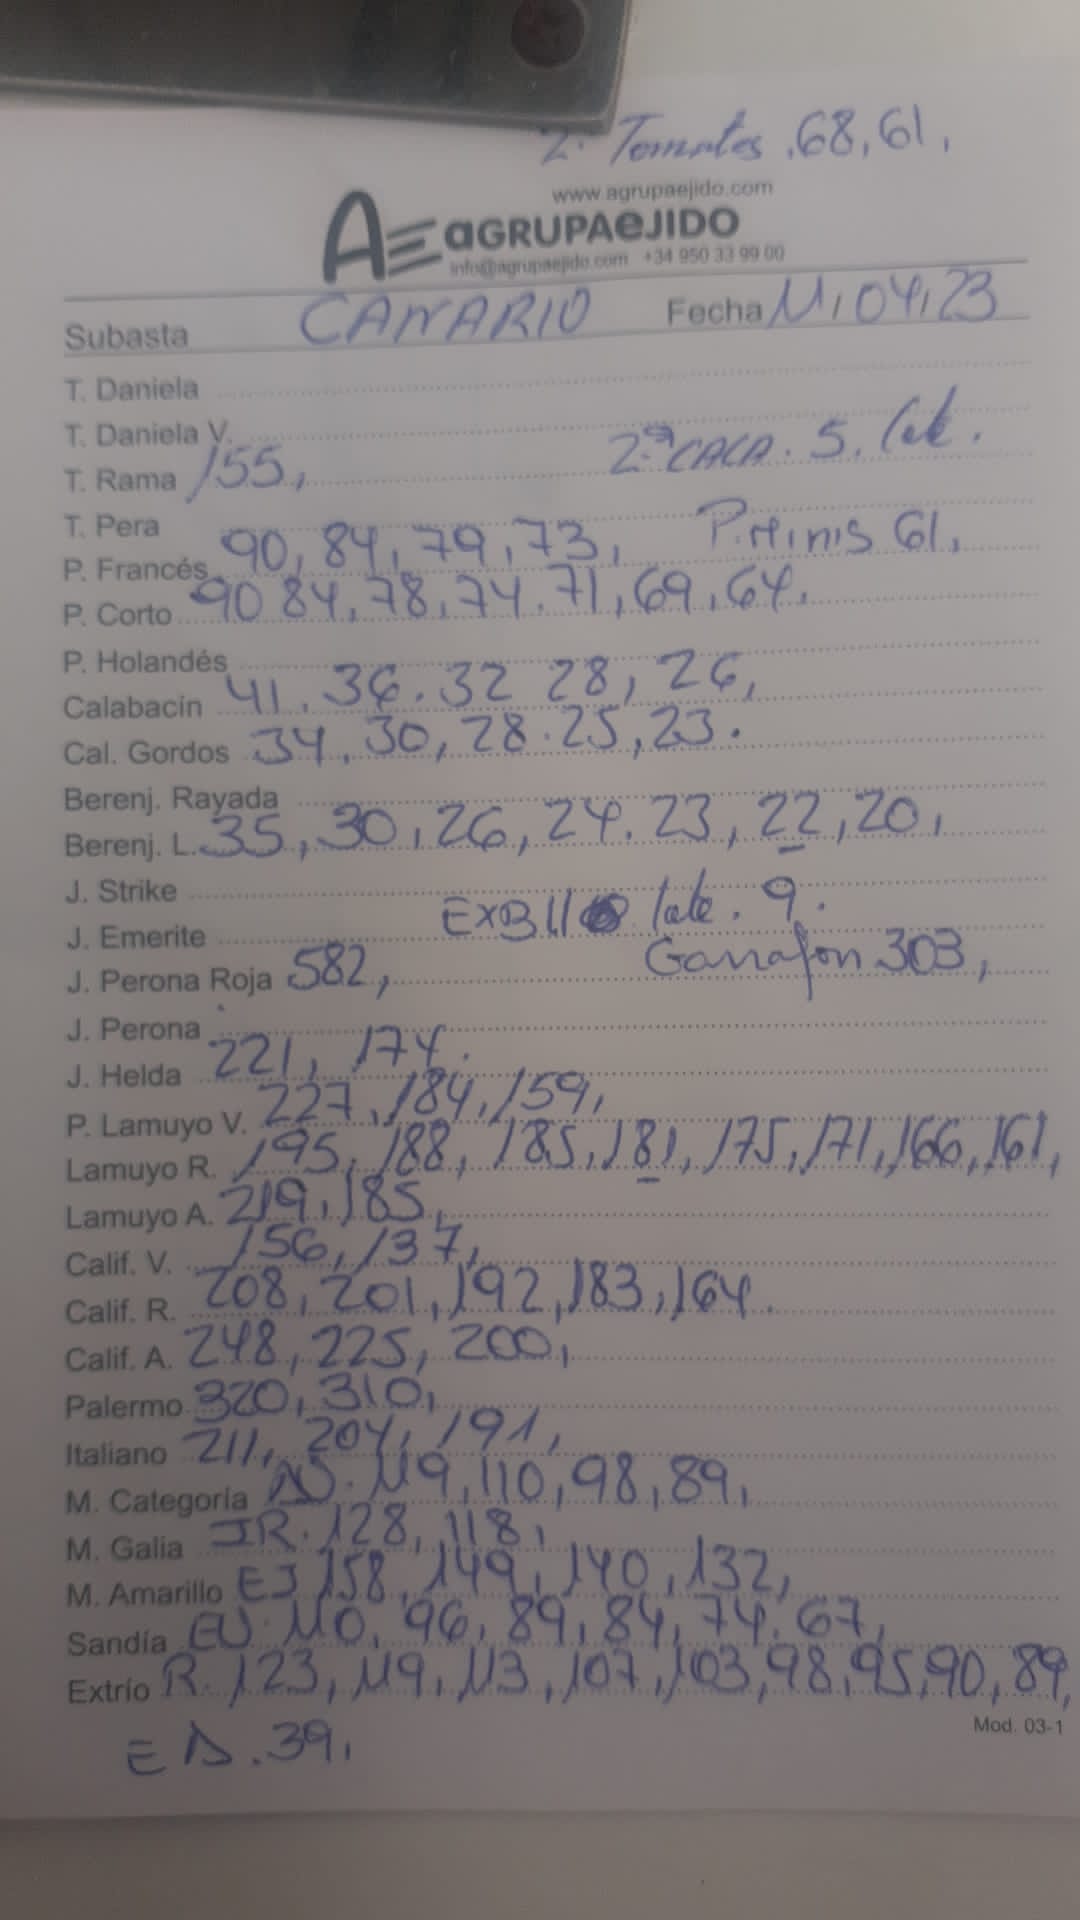 2. Tomates .68,61,
www.agrupaejido.com
AE aGRUPAeJIDO
info@agrupaejido.com +34 950 33 99 00
Subasta CANARIO Fecha 11,04,23
T. Daniela
T. Daniela V.
2.ª CACA. 5. Cate.
T. Rama 155,
T. Pera
P. Francés 90, 84, 79, 73, P. Minis 61,
P. Corto 90 84, 78, 74. 71, 69, 64.
P. Holandés
Calabacín 41. 36. 32 28, 26,
Cal. Gordos 34, 30, 28. 25, 23.
Berenj. Rayada
Berenj. L. 35, 30, 26, 24. 23, 22, 20,
J. Strike
J. Emerite 9.
Garrafon 303,
J. Perona Roja 582,
J. Perona
J. Helda 221, 174.
P. Lamuyo V. 227, 184, 159,
Lamuyo R. 195. 188, 185, 181, 175, 171, 166, 161,
Lamuyo A. 219, 185,
Calif. V. 156, 137,
Calif. R. 208, 201, 192, 183, 164.
Calif. A. 248, 225, 200,
Palermo 320, 310,
Italiano 211, 204, 191,
M. Categoría 119, 110, 98, 89,
M. Galia IR. 128, 118,
M. Amarillo EJ 158, 149, 140, 132,
Sandía 110, 96, 89, 84, 74. 67,
Extrío R. 123, 119, 113, 107, 103, 98, 95, 90, 89,
Mod. 03-1
39,